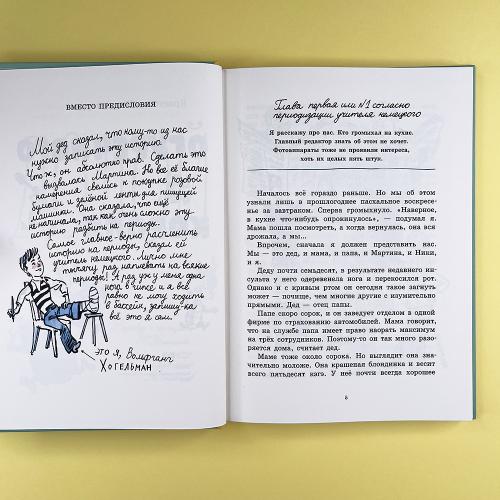 ВМЕСТО ПРЕДИСЛОВИЯ
Мой дед сказал, что кому-то из нас
нужно записать эту историю.
Что ж, он абсолютно прав. Сделать это
вызвалась Мартина. Но все её благие
намерения свелись к покупке розовой
бумаги и зелёной ленты для пишущей
машинки. Она сказала, что ещё
не начинала, так как очень сложно эту
историю разбить на периоды.
Самое главное – верно расчленить
историю на периоды, сказал ей
учитель немецкого. Лично мне
тысячу раз наплевать на всякие
периоды! А раз уж у меня одна
нога в гипсе и я всё
равно не могу ходить
в бассейн, запишу-ка
всё это я сам.
Это я, Вольфганг
Хогельман
Глава первая или №1 согласно
периодизации учителя немецкого
Я расскажу про нас. Кто громыхал на кухне.
Главный редактор знать об этом не хочет.
Фотоаппараты тоже не проявили интереса,
хоть их целых пять штук.
Началось всё гораздо раньше. Но мы об этом
узнали лишь в прошлогоднее пасхальное воскресе-
нье за завтраком. Сперва громыхнуло. «Наверное,
в кухне что-нибудь опрокинулось», — подумал я.
Мама пошла посмотреть, а когда вернулась, она вся
дрожала, а мы...
Впрочем, сначала я должен представить нас.
Мы — это дед, и мама, и папа, и Мартина, и Ники,
и я.
Деду почти семьдесят, в результате недавнего ин-
сульта у него одеревенела нога и перекосился рот.
Однако и с кривым ртом он сегодня такое может за-
гнуть — почище, чем многие другие с изумительно
прямыми. Дед — отец папы.
Папе скоро сорок, и он заведует отделом в одной
фирме по страхованию автомобилей. Мама говорит,
что на службе папа имеет право наорать максимум
на трёх сотрудников. Поэтому-то он так много разо-
ряется дома, считает дед.
Маме тоже около сорока. Но выглядит она зна-
чительно моложе. Она крашеная блондинка и весит
всего пятьдесят кэгэ. У неё почти всегда хорошее
5